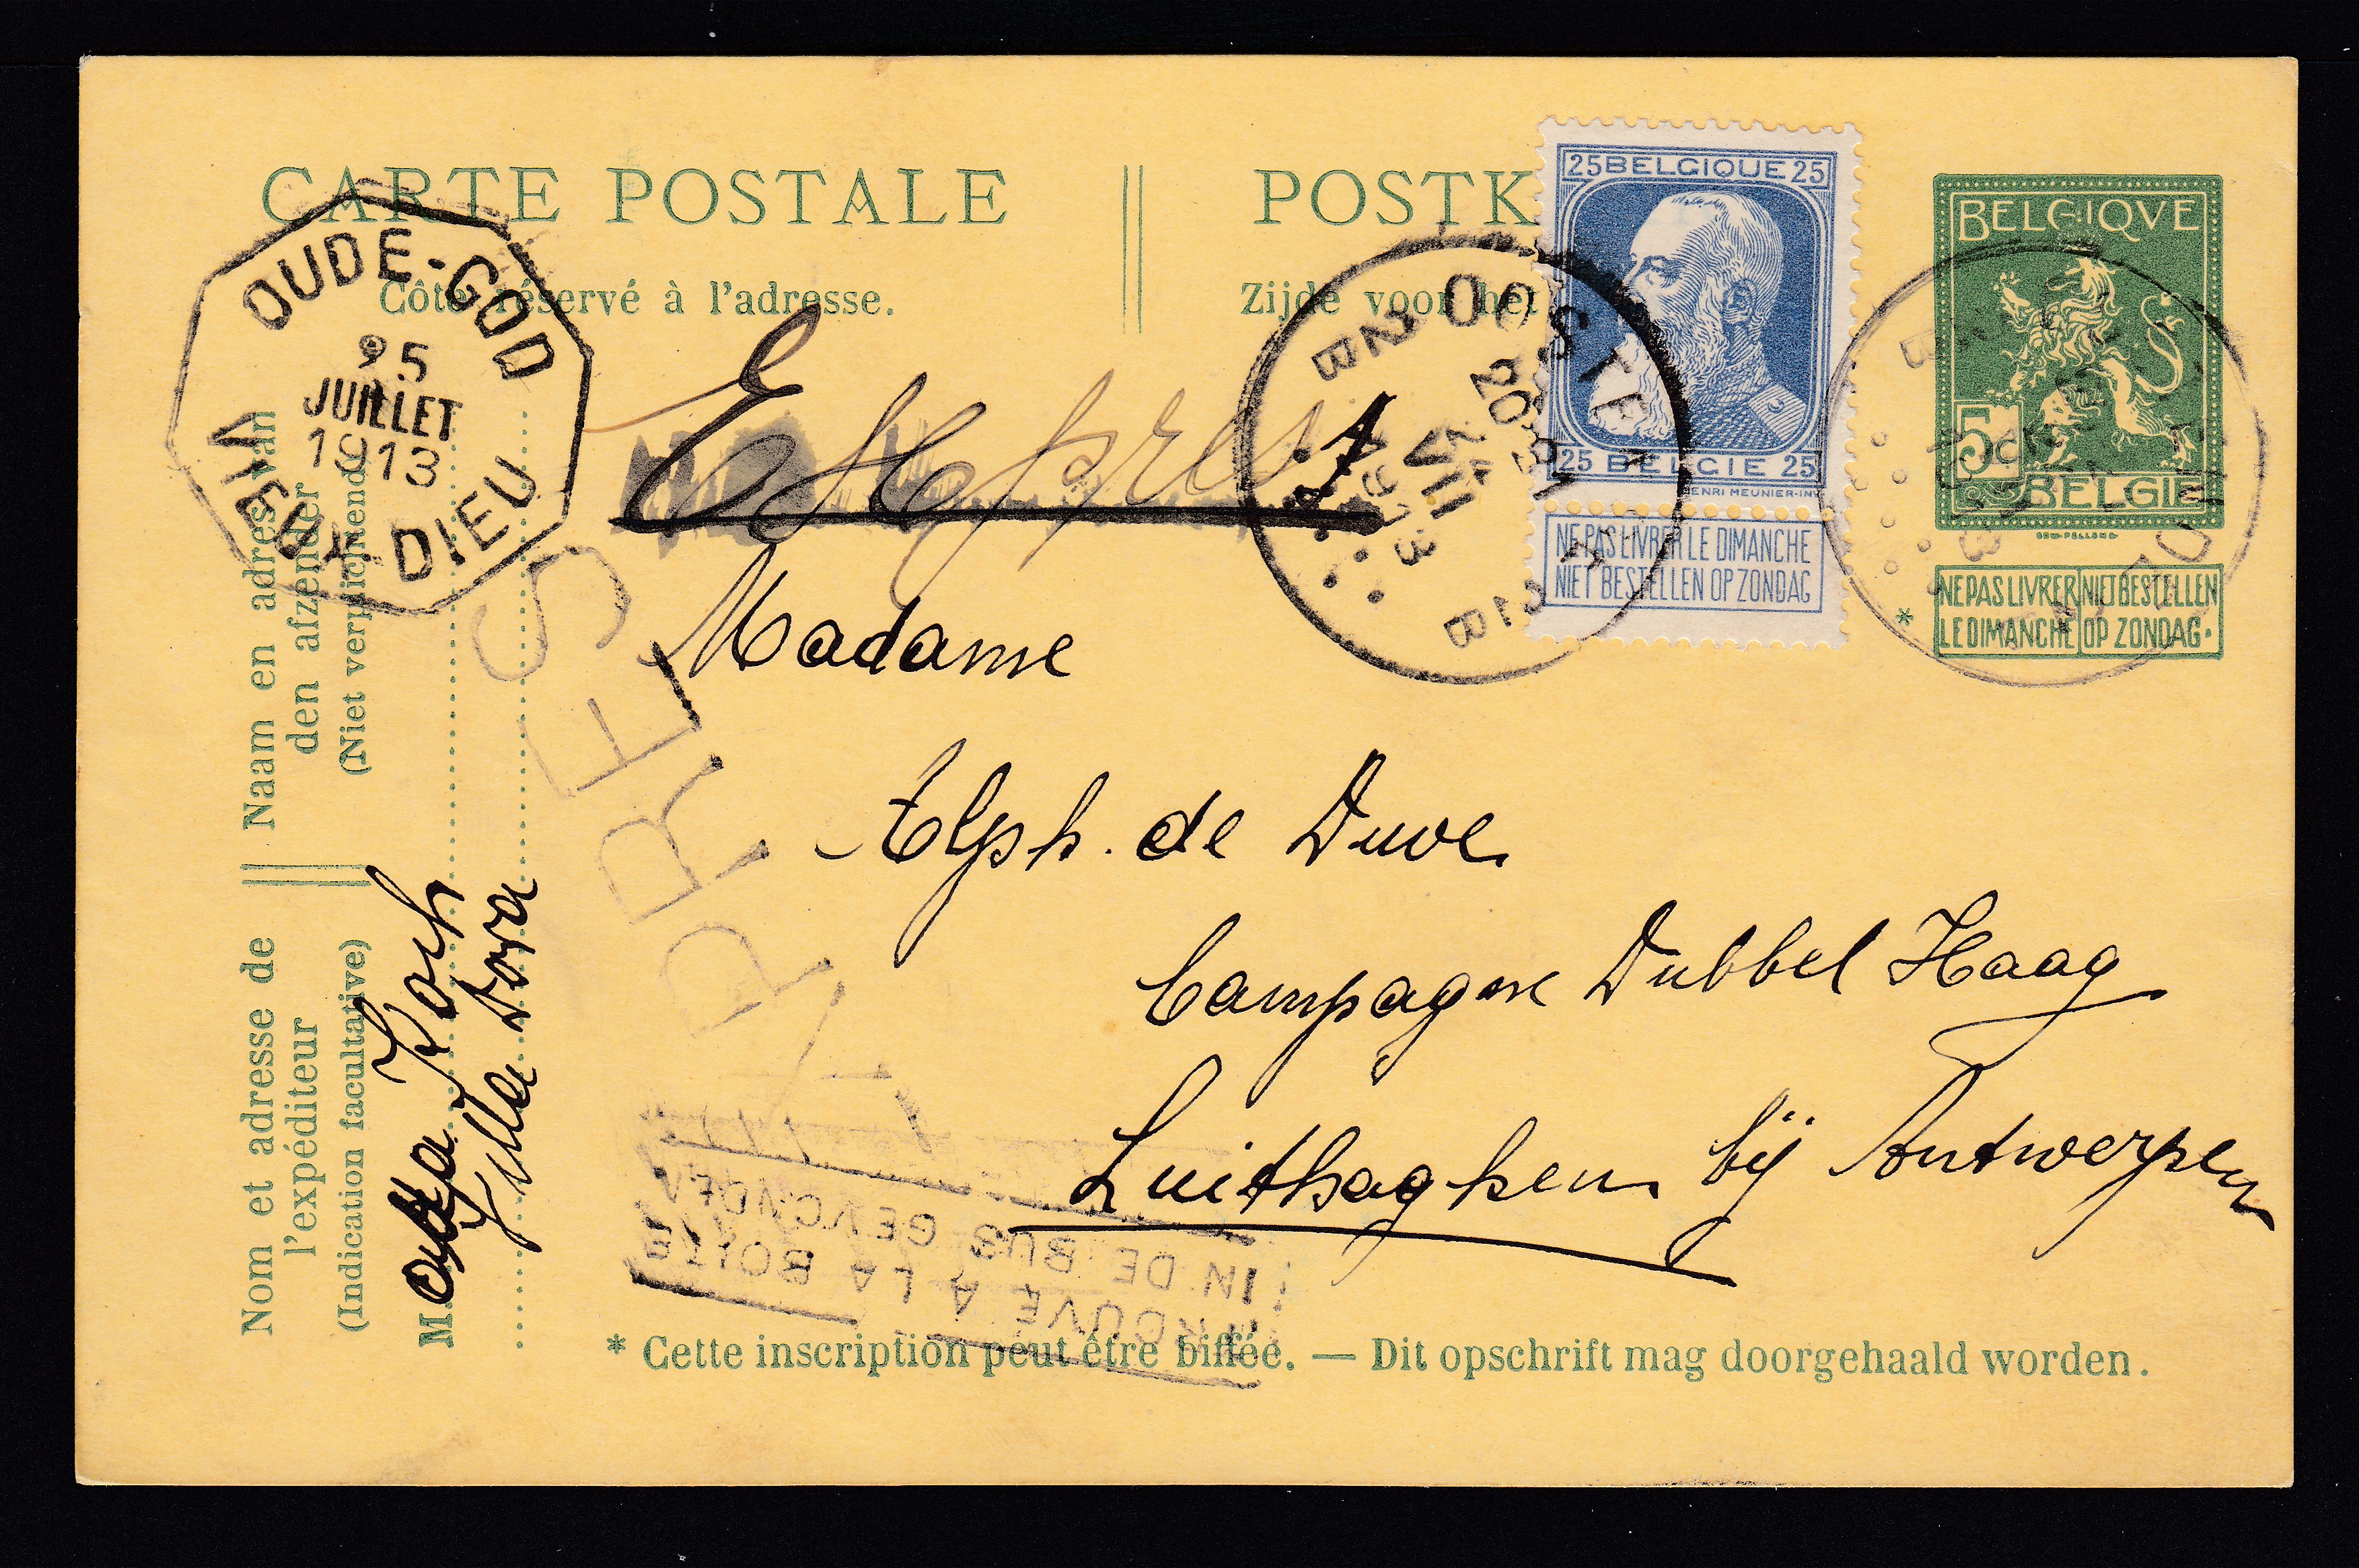 CARTE POSTALE
POSTK
Côté réservé à l'adresse.
Zijde voor het
25 BELGIQUE 25
25 BELGIE 25
HENRI MEUNIER-INV
NE PAS LIVRER LE DIMANCHE
NIET BESTELLEN OP ZONDAG
BELGIQVE
5c
BELGIE
* NE PAS LIVRER LE DIMANCHE
NIET BESTELLEN OP ZONDAG.
OUDE-GOD
25
JUILLET
1913
VIEUX DIEU
OOSTE
VII
1913
Expres
Madame
Alph. de Duve
Campagne Dubbel Haag
Luithaghen bij Antwerpen
EXPRES
IN DE BUS GEVONDEN
TROUVE A LA BOITE
Naam en adres van
den afzender
(Niet verplichtend)
Nom et adresse de
l'expéditeur
(Indication facultative)
M Koch
Villa Dora
* Cette inscription peut être biffée. — Dit opschrift mag doorgehaald worden.